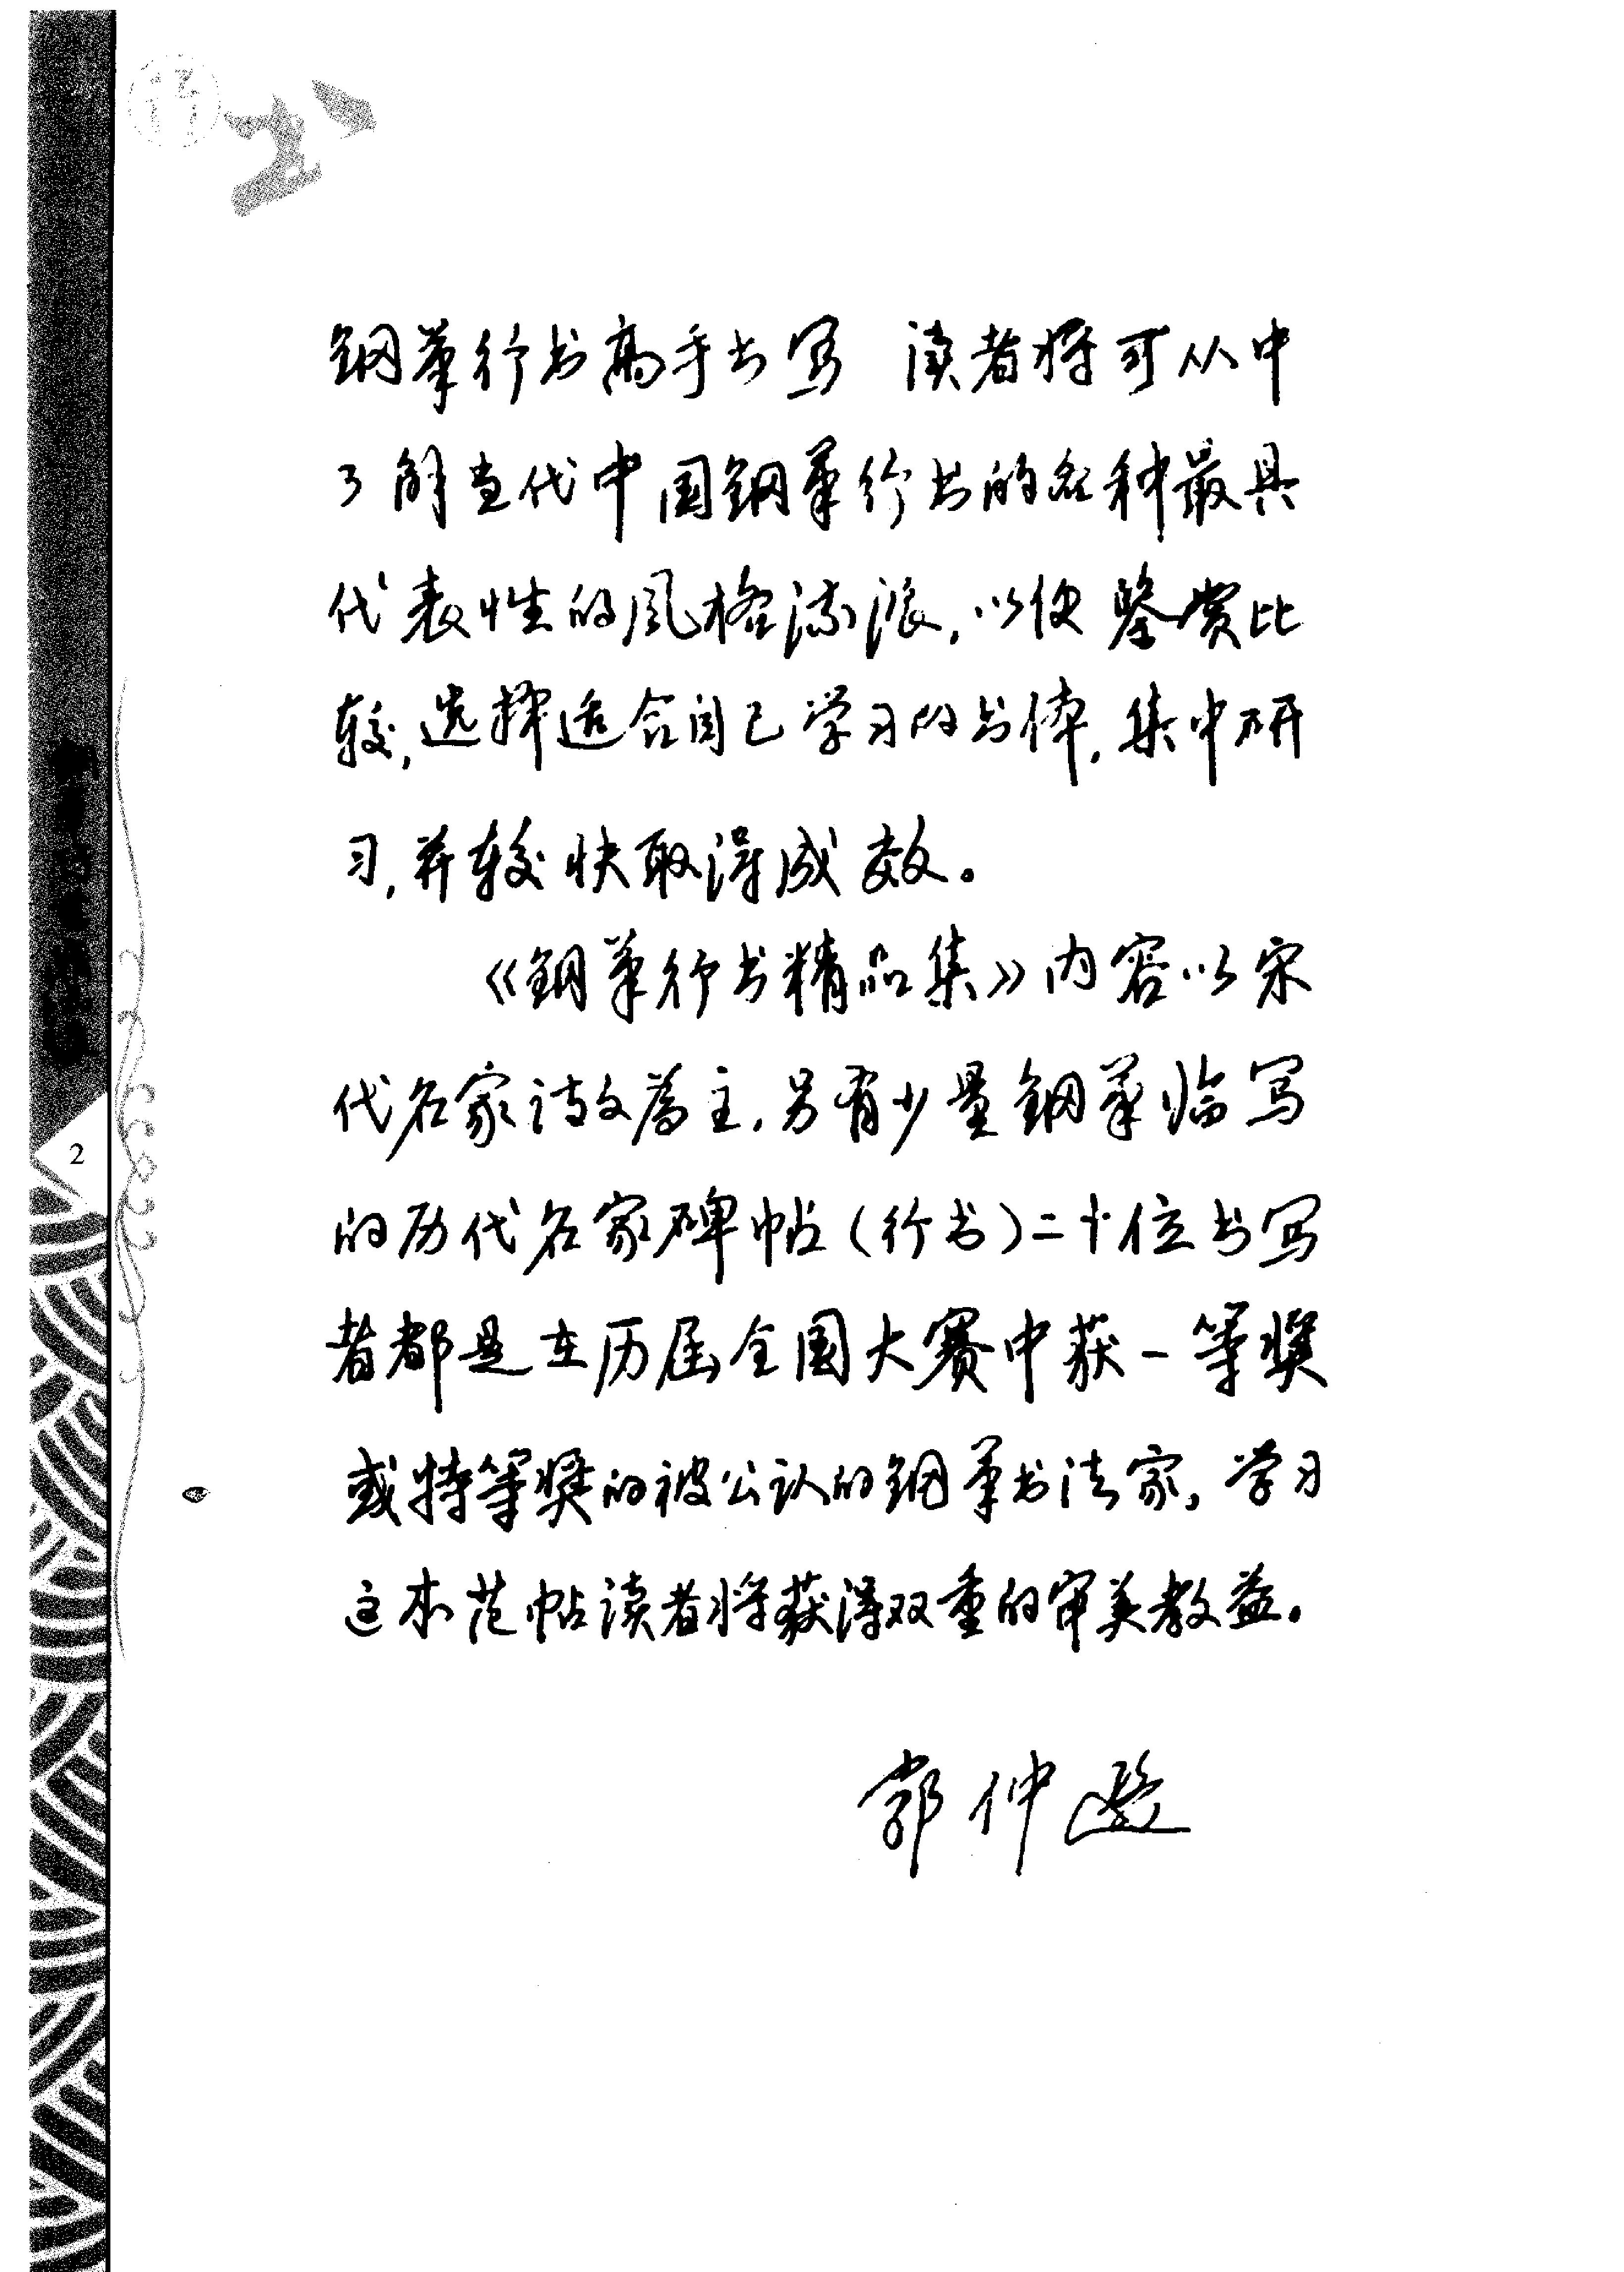 钢笔行书高手书写 读者将可从中
了解当代中国钢笔行书的各种最具
代表性的风格流派,以便鉴赏比
较,选择适合自己学习的书体,集中研
习,并较快取得成效。
《钢笔行书精品集》内容以宋
代名家诗文为主,另有少量钢笔临写
的历代名家碑帖(行书)二十位书写
者都是在历届全国大赛中获一等奖
或特等奖的被公认的钢笔书法家,学习
这本范帖读者将获得双重的审美教益。
郭仲选
2